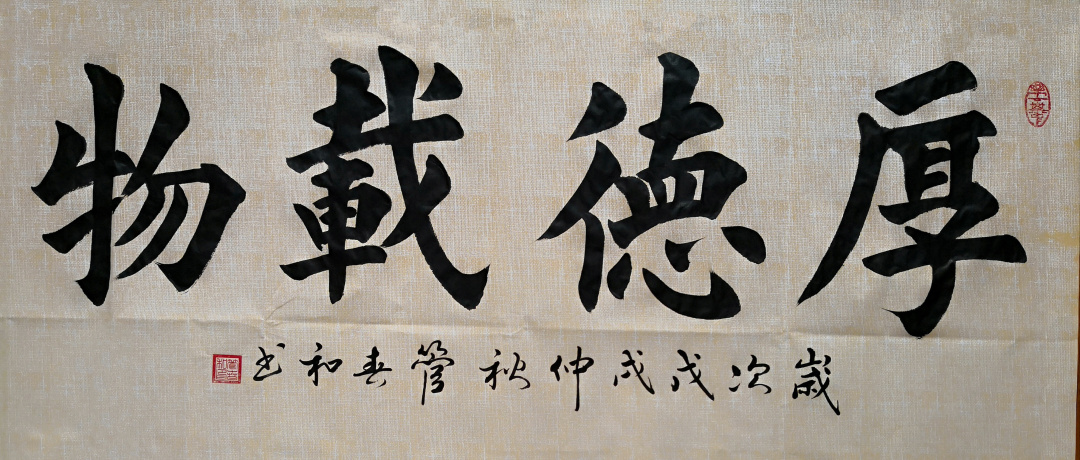 厚德載物
歲次戊戌仲秋管春和书